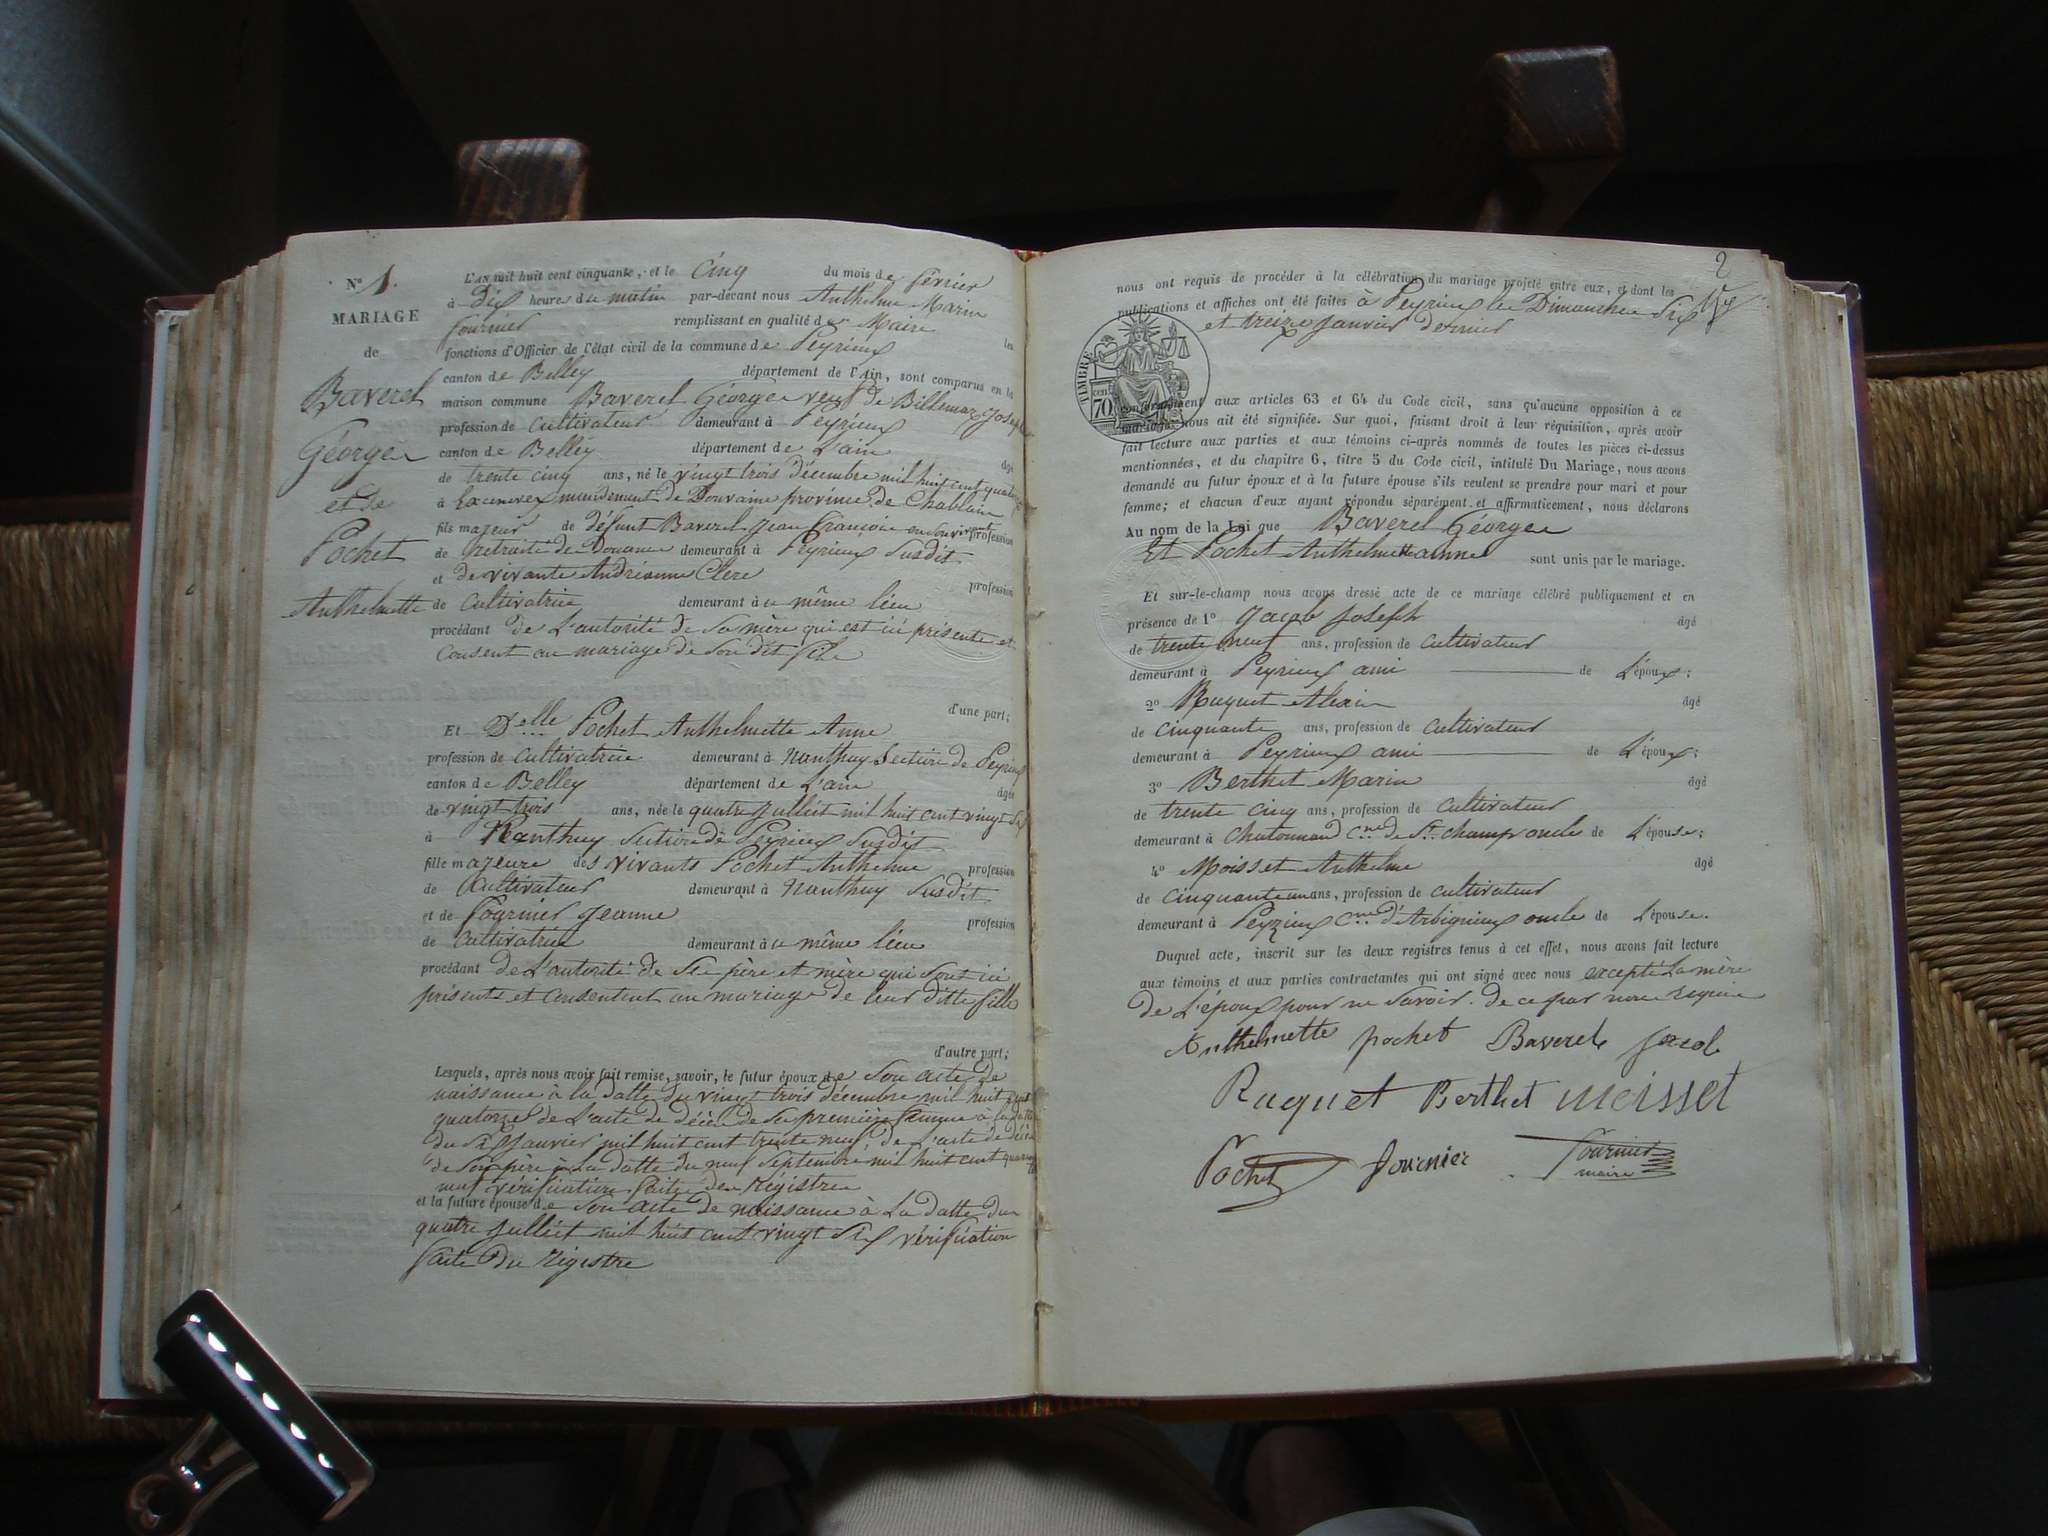 N° 1.
MARIAGE
de
Baverel
Géorges
et de
Pochet
Anthelmette
L'AN mil huit cent cinquante, et le cinq du mois de février
à dix heures du matin par-devant nous Anthelme Marin
fournier remplissant en qualité de Maire les
fonctions d'Officier de l'état civil de la commune de Peyrieux
canton de Belley département de l'Ain, sont comparus en la
maison commune Baverel Géorges veuf de Billemaz Joseph
profession de cultivateur demeurant à Peyrieux
canton de Belley département de L'ain âgé
de trente cinq ans, né le vingt trois décembre mil huit cent quatorze
à Excenevex mandement de Douvaine province de Chablais
fils majeur de défunt Baverel Jean françois en son vivant profession
de retraité de Douane demeurant à Peyrieux susdit
et de vivante Andréanne Clerc profession
de cultivatrice demeurant à ce même lieu
procédant de L'autorité de Sa mère qui est ici présente et
consent au mariage de Son dit fils
d'une part;
Et Delle Pochet Anthelmette Anne
profession de cultivatrice demeurant à nanthuy Section de Peyrieux
canton de Belley département de L'ain âgée
de vingt trois ans, née le quatre Juillet mil huit cent vingt Six
à Nanthuy Section de Peyrieux Susdit
fille majeure des vivants Pochet Anthelme profession
de Cultivateur demeurant à nanthuy Susdit
et de Fournier Jeanne profession
de cultivatrice demeurant à ce même lieu
procédant de L'autorité de Ses père et mère qui Sont ici
présents et consentent au mariage de leur ditte fille
d'autre part;
Lesquels, après nous avoir fait remise, savoir, le futur époux de Son acte de
naissance à la datte du vingt trois décembre mil huit cent
quatorze de L'acte de décès de Sa première femme à la datte
du Six Janvier mil huit cent trente neuf de L'acte de décès
de Son père à La datte du neuf Septembre mil huit cent quarante
neuf vérification faite des Registres
et la future épouse de Son acte de naissance à La datte du
quatre Juillet mil huit cent vingt Six vérification
faite du régistre
2
nous ont requis de procéder à la célébration du mariage projeté entre eux, et dont les
publications et affiches ont été faites à Peyrieux les Dimanches Six
et treize Janvier dernier
TIMBRE
70 cen
conformément aux articles 63 et 64 du Code civil, sans qu'aucune opposition à ce
mariage nous ait été signifiée. Sur quoi, faisant droit à leur réquisition, après avoir
fait lecture aux parties et aux témoins ci-après nommés de toutes les pièces ci-dessus
mentionnées, et du chapitre 6, titre 5 du Code civil, intitulé Du Mariage, nous avons
demandé au futur époux et à la future épouse s'ils veulent se prendre pour mari et pour
femme; et chacun d'eux ayant répondu séparément et affirmativement, nous déclarons
Au nom de la Loi que Baverel Géorges
Et Pochet Anthelmette anne sont unis par le mariage.
Et sur-le-champ nous avons dressé acte de ce mariage célébré publiquement et en
présence de 1° Jacob Joseph âgé
de trente neuf ans, profession de cultivateur
demeurant à Peyrieux ami de L'époux;
2° Ruquet Alexis âgé
de cinquante ans, profession de cultivateur
demeurant à Peyrieux ami de L'époux;
3° Berthet Marin âgé
de trente cinq ans, profession de cultivateur
demeurant à Chatonnand Cne de St champ oncle de L'épouse;
4° Moisset Anthelme âgé
de cinquante un ans, profession de cultivateur
demeurant à Peyzieux Cne d'Arbignieux oncle de L'épouse.
Duquel acte, inscrit sur les deux registres tenus à cet effet, nous avons fait lecture
aux témoins et aux parties contractantes qui ont signé avec nous excepté La mère
de L'époux pour ne Savoir. de ce par nous requise
Anthelmette pochet Baverel Jacob
Ruquet Berthet Moisset
Pochet fournier fournier
maire